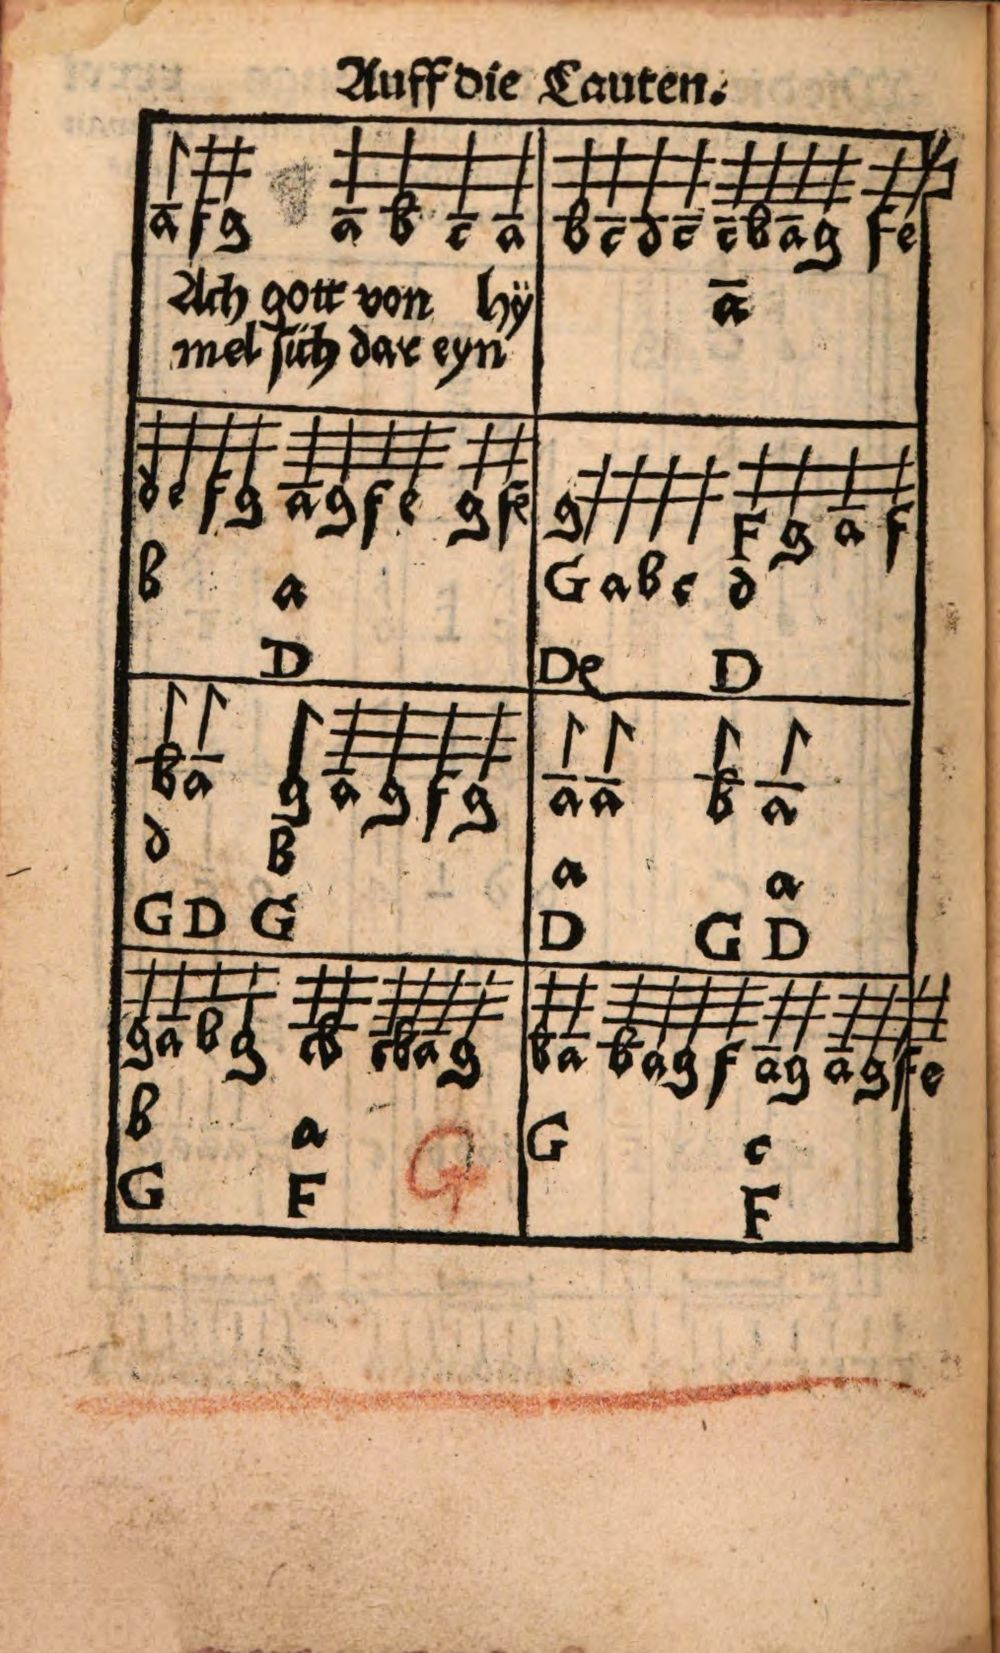 Auff die Lauten.
a̅ f g a̅ b̅ c̅ a̅
Ach gott von hÿ
mel sich dar eyn
b̅ c̅ d̅ c̅ c̅ b̅ a̅ g f e
a̅
d e f g a̅ g f e g f e
b a
D
g F g a̅ f
G a b c d
D e D
b̅ a̅ g a̅ g f g
d B
G D G
a̅ a̅ b̅ a̅
a a
D G D
g a̅ b̅ g c̅ b̅ c̅ b̅ a̅ g
b a
G F G
b̅ a̅ b̅ a̅ g f a̅ g a̅ g f e
G c
F